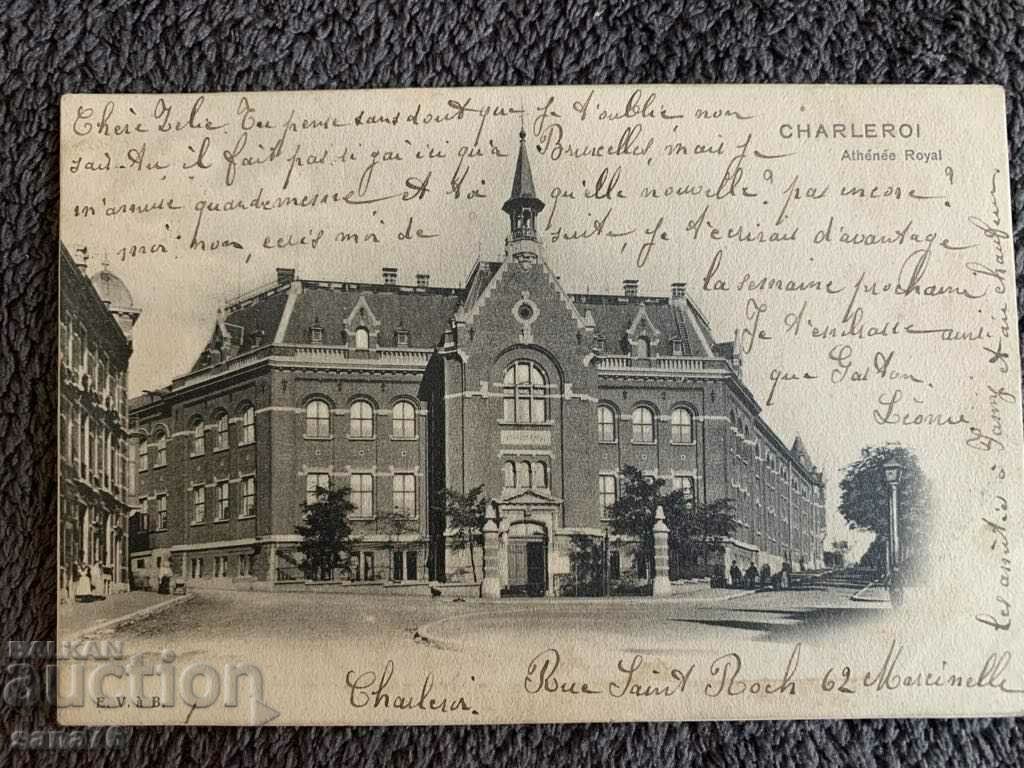 CHARLEROI
Athénée Royal
Chère Zelie. Tu pense sans dout que je t'oublie non
sais-tu, il fait pas si gai ici qu'a Bruxelles, mais je
m'amuse quandemesse et toi qu'elle nouvelle? pas encore?
moi non, ecris moi de suite, je t'écrirait d'avantage
la semaine prochaine
Je t'embrasse ainsi
que Gaston.
Léonie
Les amitié à Fanny et au chauffeur
Charleroi. Rue Saint Roch 62 Marcinelle
E. V. à B.
BALKAN
auction
sana76